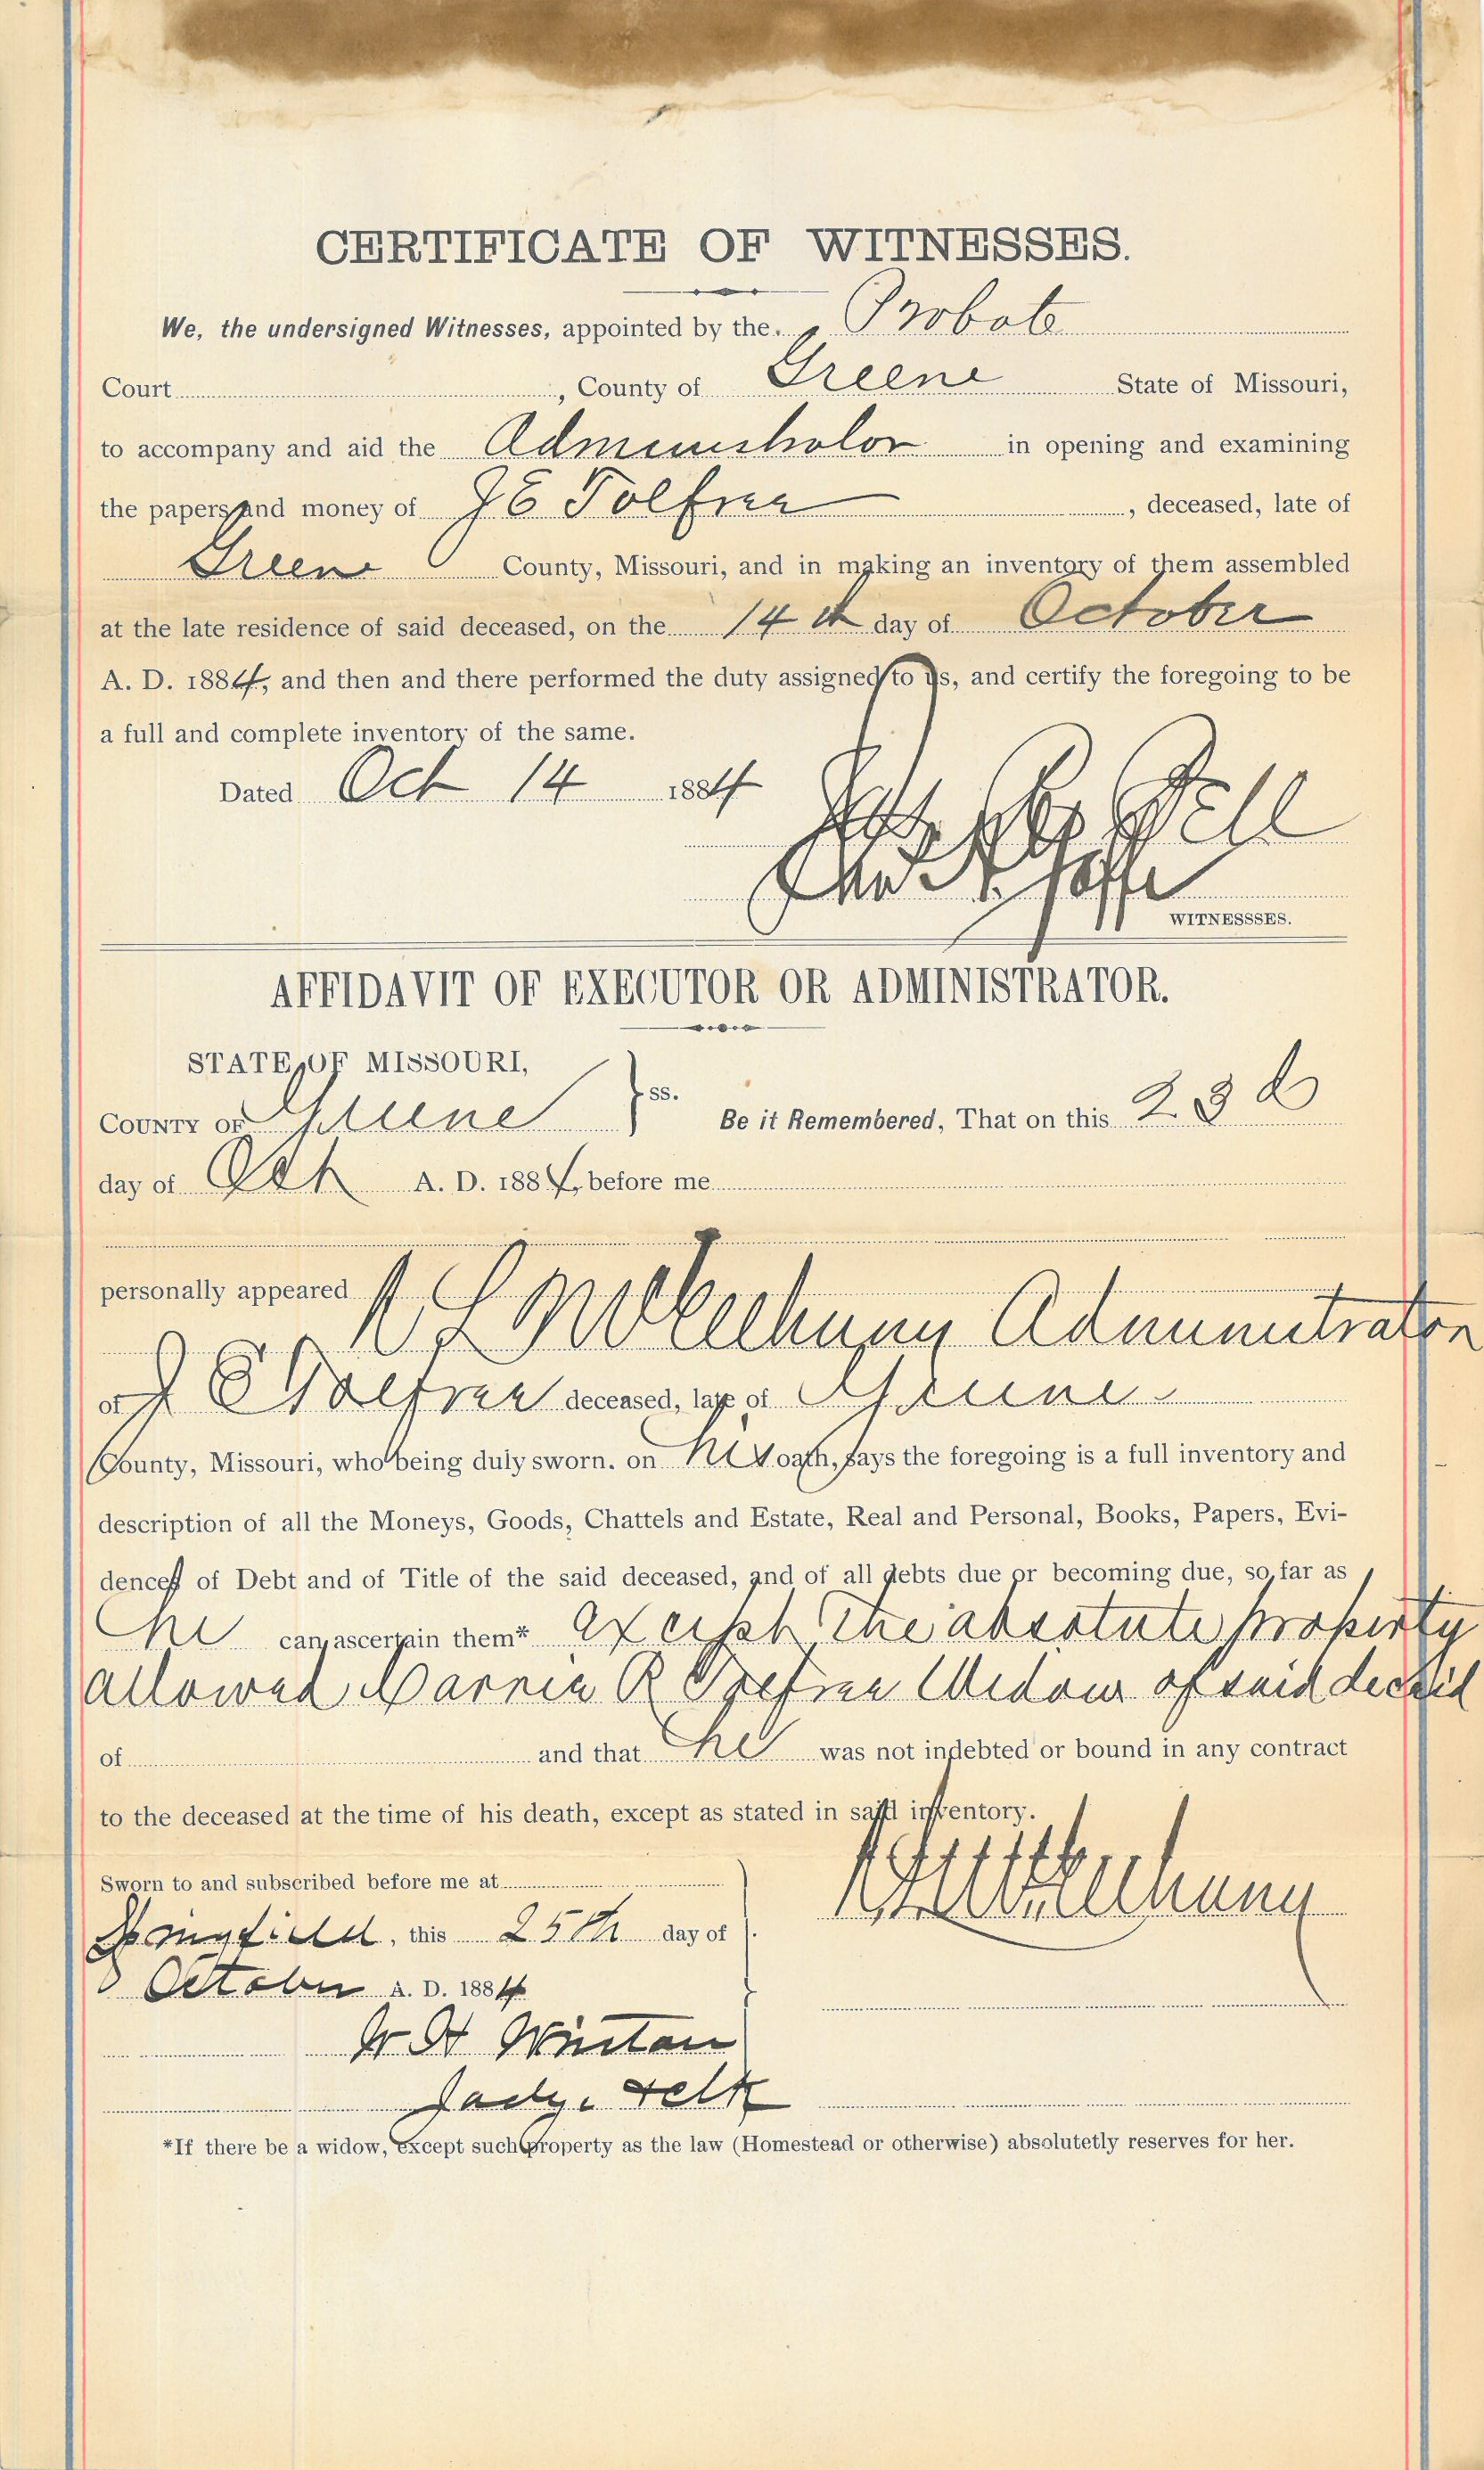 CERTIFICATE OF WITNESSES.
We, the undersigned Witnesses, appointed by the Probate
Court , County of Greene State of Missouri,
to accompany and aid the Administrator in opening and examining
the papers and money of J E Tolfree , deceased, late of
Greene County, Missouri, and in making an inventory of them assembled
at the late residence of said deceased, on the 14th day of October
A. D. 1884, and then and there performed the duty assigned to us, and certify the foregoing to be
a full and complete inventory of the same.
Dated Oct 14 1884
Bell
WITNESSSES.
AFFIDAVIT OF EXECUTOR OR ADMINISTRATOR.
STATE OF MISSOURI,
COUNTY OF Greene } ss. Be it Remembered, That on this 23d
day of Oct A. D. 1884, before me
personally appeared
Administrator
of J E Tolfree deceased, late of Greene
County, Missouri, who being duly sworn. on his oath, says the foregoing is a full inventory and
description of all the Moneys, Goods, Chattels and Estate, Real and Personal, Books, Papers, Evi-
dences of Debt and of Title of the said deceased, and of all debts due or becoming due, so far as
he can ascertain them* except the absolute property
allowed Carrie R Tolfree Widow of said deceed
of and that he was not indebted or bound in any contract
to the deceased at the time of his death, except as stated in said inventory.
Sworn to and subscribed before me at
Springfield, this 25th day of
October A. D. 1884
W H Winton
*If there be a widow, except such property as the law (Homestead or otherwise) absolutetly reserves for her.